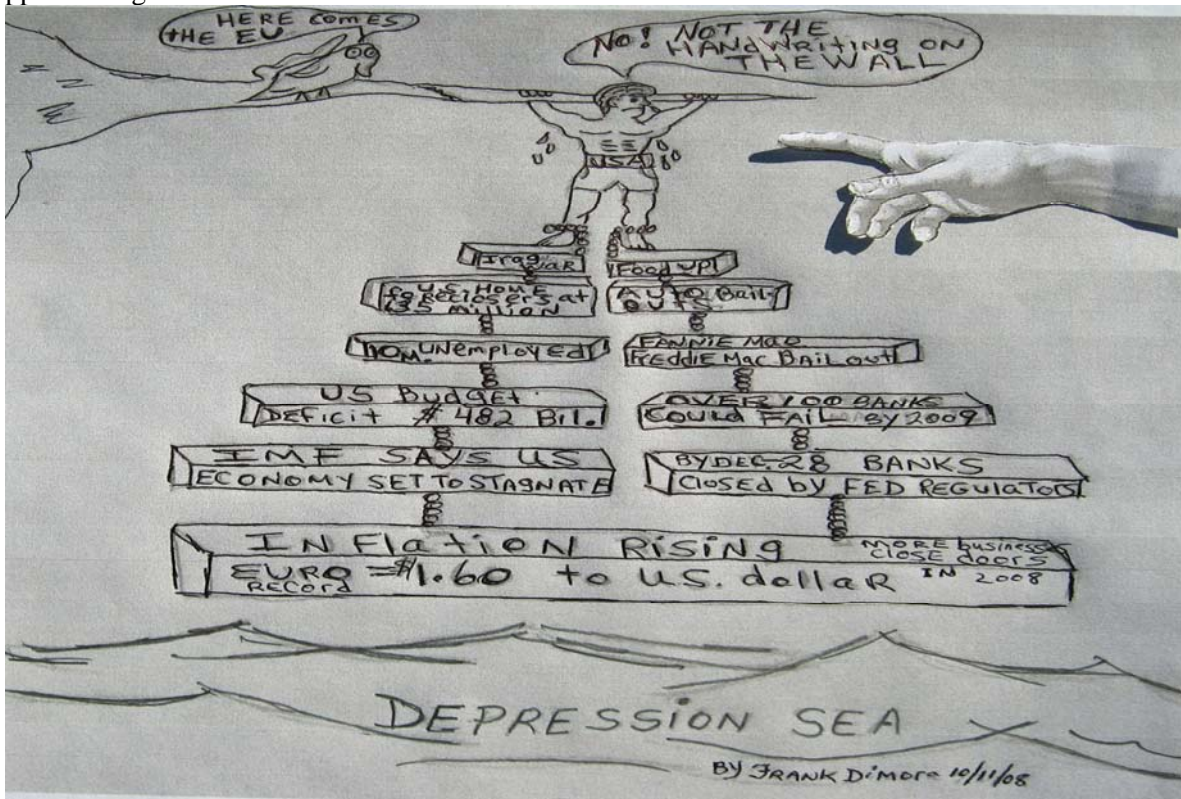 HERE COMES
THE EU
NO! NOT THE
HANDWRITING ON
THE WALL
USA
Iraq
WAR
Food UP!
U.S. HOME
at
MILLION
AUTO Bail
OUTS
10M. UNemployed
FANNIE Mac
FREddiE Mac BAiL out
US BudgEt
DEFicit $ 482 Bil.
OVER 100 BANKS
COULD FAIL BY 2009
IMF SAYS US
ECONOMY SET TO STAGNATE
BY DEC. 28 BANKS
Closed by FED REGULATORS
INFlation Rising
MORE business
CLOSE doors
EURO = $1.60 to U.S. dollar IN 2008
RECORd
DEPRESSiON SEA
BY FRANK DiMora 10/11/08